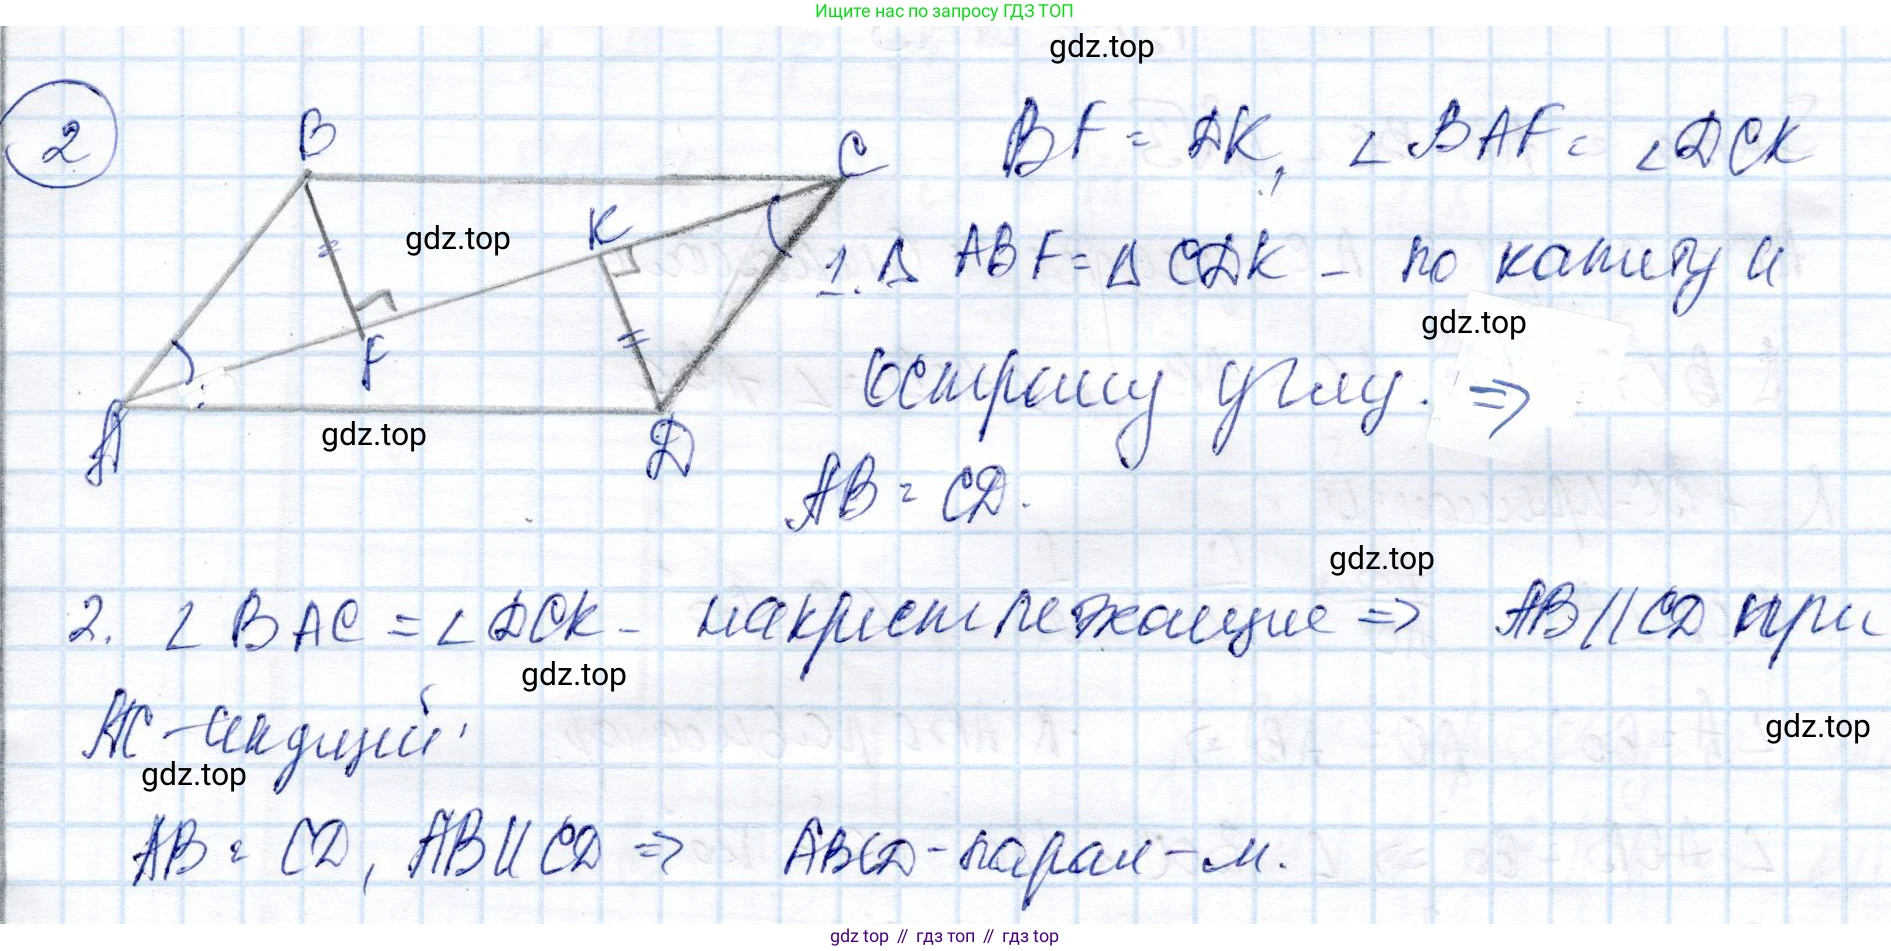 Ищите нас по запросу ГДЗ ТОП
gdz.top
2
B
C
BF = DK, ∠BAF = ∠DCK
K
gdz.top
1. Δ ABF = Δ CDK - по катету и
gdz.top
F
острому углу. =>
A
gdz.top
D
AB = CD.
gdz.top
2. ∠BAC = ∠DCK - накрест лежащие => AB || CD при
gdz.top
AC - секущей.
gdz.top
gdz.top
AB = CD, AB || CD => ABCD - парал-м.
gdz.top // гдз топ // гдз.top